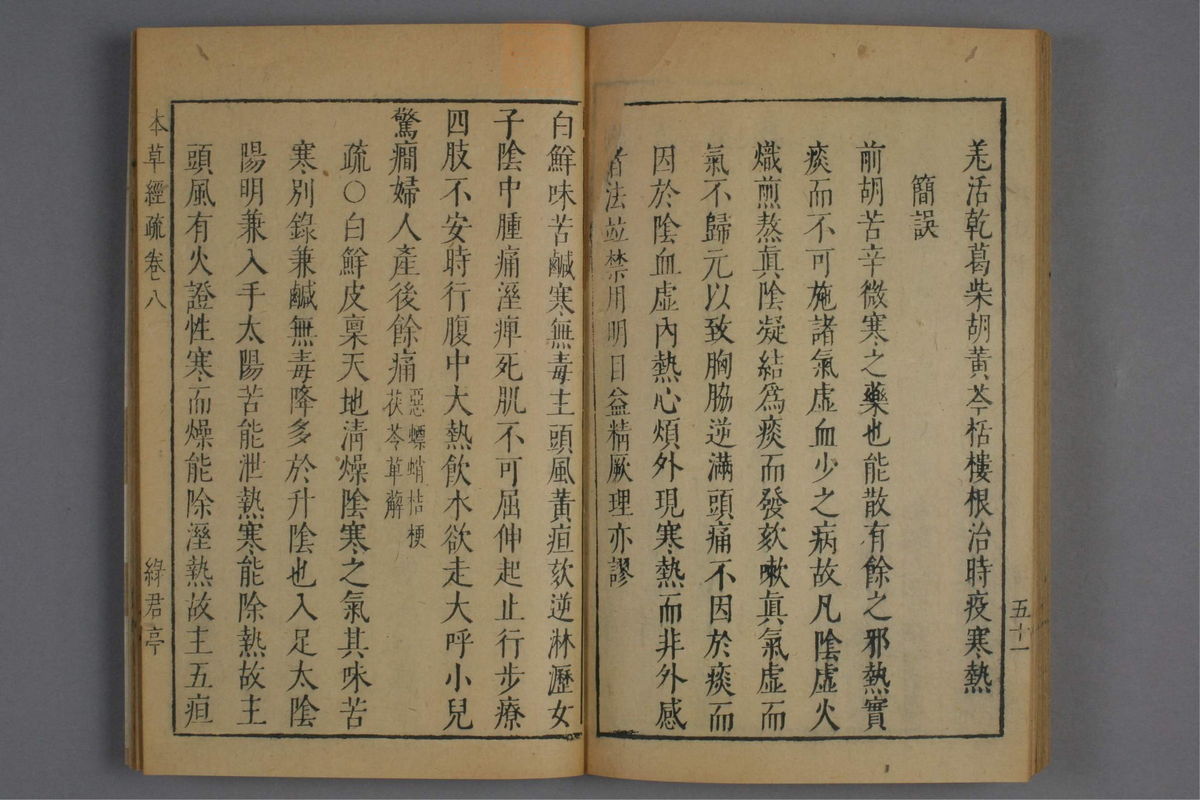 羌活乾葛柴胡黃芩栝樓根治時疫寒熱
簡誤
前胡苦辛微寒之藥也能散有餘之邪熱實
痰而不可施諸氣虛血少之病故凡陰虛火
熾煎熬眞陰凝結爲痰而發欬嗽眞氣虛而
氣不歸元以致胸脇逆滿頭痛不因於痰而
因於陰血虛內熱心煩外現寒熱而非外感
者法並禁用明目益精厥理亦謬
五十一
白鮮味苦鹹寒無毒主頭風黃疸欬逆淋瀝女
子陰中腫痛溼痺死肌不可屈伸起止行步療
四肢不安時行腹中大熱飲水欲走大呼小兒
驚癇婦人產後餘痛惡螵蛸桔梗茯苓萆薢
疏○白鮮皮稟天地清燥陰寒之氣其味苦
寒別錄兼鹹無毒降多於升陰也入足太陰
陽明兼入手太陽苦能泄熱寒能除熱故主
頭風有火證性寒而燥能除溼熱故主五疸
本草經疏卷八
綠君亭